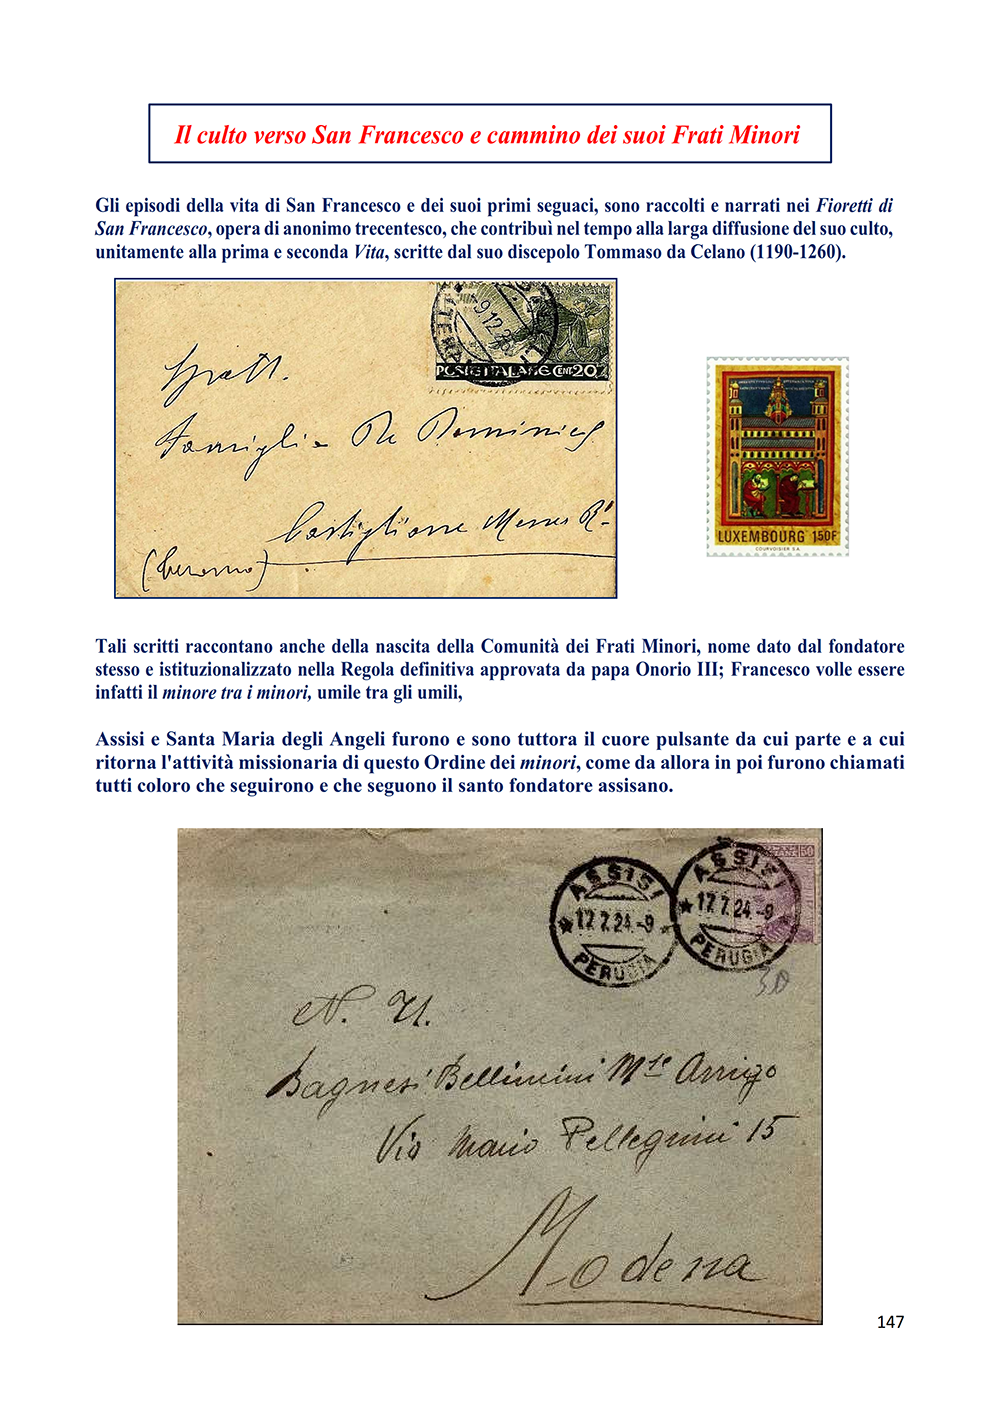 Il culto verso San Francesco e cammino dei suoi Frati Minori
Gli episodi della vita di San Francesco e dei suoi primi seguaci, sono raccolti e narrati nei Fioretti di
San Francesco, opera di anonimo trecentesco, che contribuì nel tempo alla larga diffusione del suo culto,
unitamente alla prima e seconda Vita, scritte dal suo discepolo Tommaso da Celano (1190-1260).
9.12.2
POSTE ITALIANE CENT. 20
Famiglia De Dominicis
Castiglione Messer
LUXEMBOURG 150F
COURVOISIER S.A.
Tali scritti raccontano anche della nascita della Comunità dei Frati Minori, nome dato dal fondatore
stesso e istituzionalizzato nella Regola definitiva approvata da papa Onorio III; Francesco volle essere
infatti il minore tra i minori, umile tra gli umili,
Assisi e Santa Maria degli Angeli furono e sono tuttora il cuore pulsante da cui parte e a cui
ritorna l'attività missionaria di questo Ordine dei minori, come da allora in poi furono chiamati
tutti coloro che seguirono e che seguono il santo fondatore assisano.
50
ASSISI
17.7.24.-9
PERUGIA
ASSISI
17.7.24.-9
PERUGIA
N. U.
Bagnesi Bellincini Mse Arrigo
Via Mario Pellegrini 15
Modena
147